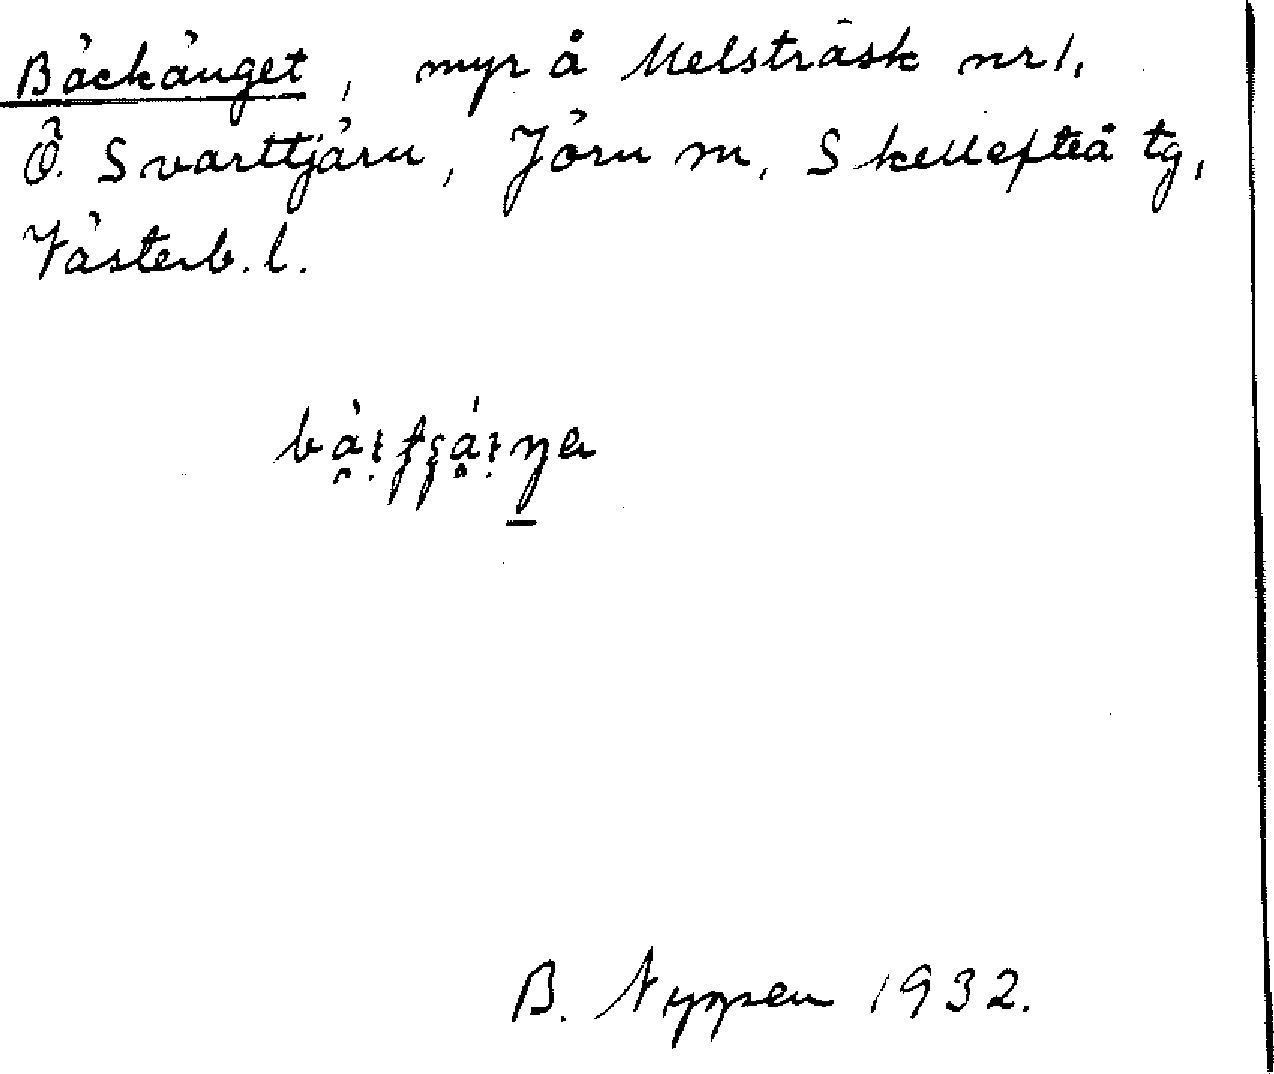 Bäckänget, myr å Melsträsk nr 1,
Ö. Svarttjärn, Jörn sn, Skellefteå tg,
Västerb. l.
B. Nyppen 1932.